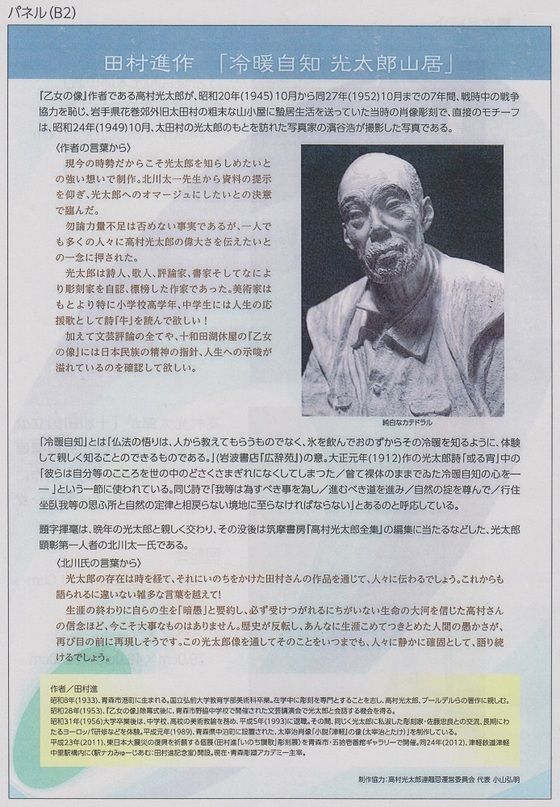 パネル(B2)
田村進作 「冷暖自知 光太郎山居」
『乙女の像』作者である高村光太郎が、昭和20年(1945)10月から同27年(1952)10月までの7年間、戦時中の戦争
協力を恥じ、岩手県花巻郊外旧太田村の粗末な山小屋に蟄居生活を送っていた当時の肖像彫刻で、直接のモチーフ
は、昭和24年(1949)10月、太田村の光太郎のもとを訪れた写真家の濱谷浩が撮影した写真である。
〈作者の言葉から〉
現今の時勢だからこそ光太郎を知らしめたいと
の強い想いで制作。北川太一先生から資料の提示
を仰ぎ、光太郎へのオマージュにしたいとの決意
で臨んだ。
勿論力量不足は否めない事実であるが、一人で
も多くの人々に高村光太郎の偉大さを伝えたいと
の一念に押された。
光太郎は詩人、歌人、評論家、書家そしてなによ
り彫刻家を自認、標榜した作家であった。美術家は
もとより特に小学校高学年、中学生には人生の応
援歌として詩「牛」を読んで欲しい！
加えて文芸評論の全てや、十和田湖休屋の『乙女
の像』には日本民族の精神の指針、人生への示唆が
溢れているのを確認して欲しい。
純白なカテドラル
「冷暖自知」とは「仏法の悟りは、人から教えてもらうものでなく、氷を飲んでおのずからその冷暖を知るように、体験
して親しく知ることのできるものである。」(岩波書店『広辞苑』)の意。大正元年(1912)作の光太郎詩「或る宵」中の
「彼らは自分等のこころを世の中のどさくさまぎれになくしてしまつた／曾て裸体のままでゐた冷暖自知の心を――
―」という一節に使われている。同じ詩で「我等は為すべき事を為し／進むべき道を進み／自然の掟を尊んで／行住
坐臥我等の思ふ所と自然の定律と相戻らない境地に至らなければならない」とあるのと呼応している。
題字揮毫は、晩年の光太郎と親しく交わり、その没後は筑摩書房『高村光太郎全集』の編集に当たるなどした、光太郎
顕彰第一人者の北川太一氏である。
〈北川氏の言葉から〉
光太郎の存在は時を経て、それにいのちをかけた田村さんの作品を通じて、人々に伝わるでしょう。これからも
語られるに違いない雑多な言葉を越えて！
生涯の終わりに自らの生を「暗愚」と要約し、必ず受けつがれるにちがいない生命の大河を信じた高村さん
の信念ほど、今こそ大事なものはありません。歴史が反転し、あんなに生涯こめてつきとめた人間の愚かさが、
再び目の前に再現しそうです。この光太郎像を通してそのことをいつまでも、人々に静かに確固として、語り続
けるでしょう。
作者／田村進
昭和8年(1933)、青森市港町に生まれる。国立弘前大学教育学部美術科卒業。在学中に彫刻を専門とすることを志し、高村光太郎、ブールデルらの著作に親しむ。
昭和28年(1953)、『乙女の像』除幕式後に、青森市野脇中学校で開催された文芸講演会で光太郎と会話する機会を得る。
昭和31年(1956)大学卒業後は、中学校、高校の美術教諭を務め、平成5年(1993)に退職。その間、同じく光太郎に私淑した彫刻家・佐藤忠良との交流、長期にわ
たるヨーロッパ研修などを体験。平成元年(1989)、青森県中泊町に設置された、太宰治肖像「小説「津軽」の像(太宰治とたけ)」を制作している。
平成23年(2011)、東日本大震災の復興を祈願する個展(田村進「いのち讃歌」彫刻展)を青森市・五拾壱番館ギャラリーで開催。同24年(2012)、津軽鉄道津軽
中里駅構内に〈駅ナカみゅーじあむ:田村進記念室〉開設。現在・青森彫塑アカデミー主宰。
制作協力:高村光太郎連翹忌運営委員会 代表 小山弘明